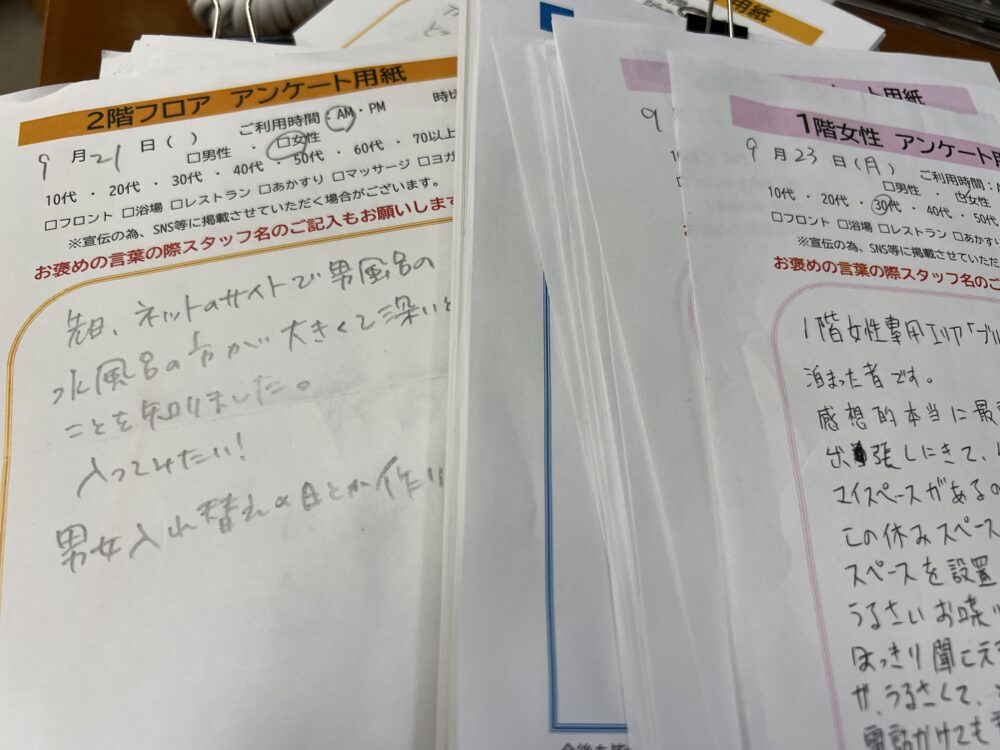 2階フロア アンケート用紙
9月21日( ) ご利用時間:AM・PM 時頃
□男性・□女性
10代・20代・30代・40代・50代・60代・70以上
□フロント □浴場 □レストラン □あかすり □マッサージ □ヨガ
※宣伝の為、SNS等に掲載させていただく場合がございます。
お褒めの言葉の際スタッフ名のご記入もお願いします
先日、ネットのサイトで男風呂の
水風呂の方が大きくて深いと
ことを知りました。
入ってみたい!
男女入れ替えの日とか作り
用紙
ート用紙
9
1階女性 アンケート用
9月23日(月) ご利用時間:
□男性・□女性
10代・20代・30代・40代・50代
□フロント □浴場 □レストラン □あかすり
※宣伝の為、SNS等に掲載させていただ
お褒めの言葉の際スタッフ名のご
1階女性専用エリア「ブル
泊まった者です。
感想的本当に最
出張しにきて、
マイスペースがあるの
この休みスペース
スペースを設置
うるさいお喋り
はっきり聞こえ
が、うるさくて、
電話かけても